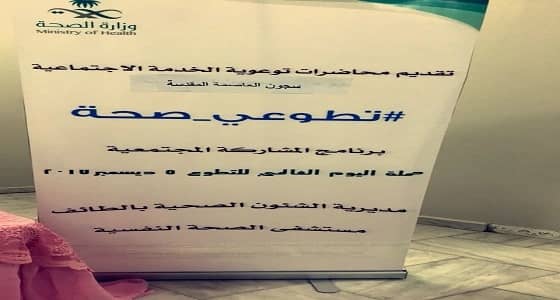 وزارة الصحة
Ministry of Health
تقديم محاضرات توعوية الخدمة الاجتماعية
سجون العاصمة المقدسة
#تطوعي_صحة
برنامج المشاركة المجتمعية
حملة اليوم العالمي للتطوع ٥ ديسمبر ٢٠١٧
مديرية الشئون الصحية بالطائف
مستشفى الصحة النفسية